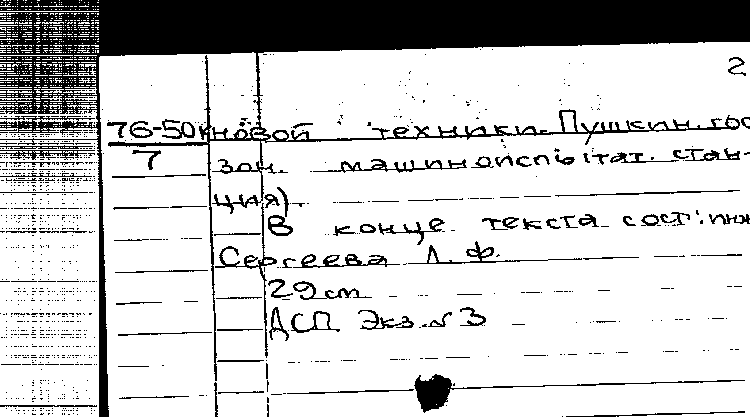 2
76-50к новой техники. Пушкин. гос
7 зон. машиноиспытат. стан-
ция).
В конце текста сост: инж
Сергеева Л. Ф.
29 cm
ДСП Экз. № 3